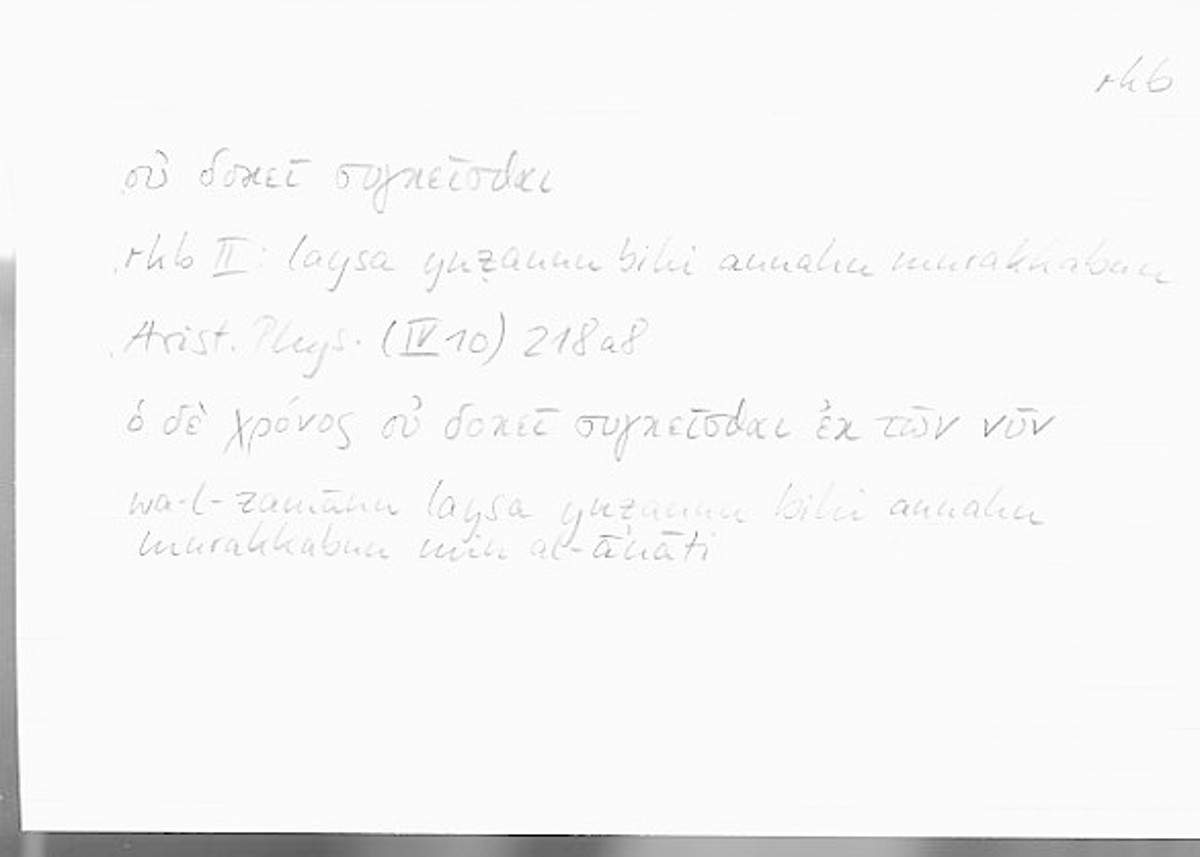 rkb
οὐ δοκεῖ συγκεῖσθαι
rkb II: laysa yuẓannu bihi annahu murakkabun
Arist. Phys. (IV 10) 218a8
ὁ δὲ χρόνος οὐ δοκεῖ συγκεῖσθαι ἐκ τῶν νῦν
wa-l-zamānu laysa yuẓannu bihi annahu
murakkabun min al-ānāti